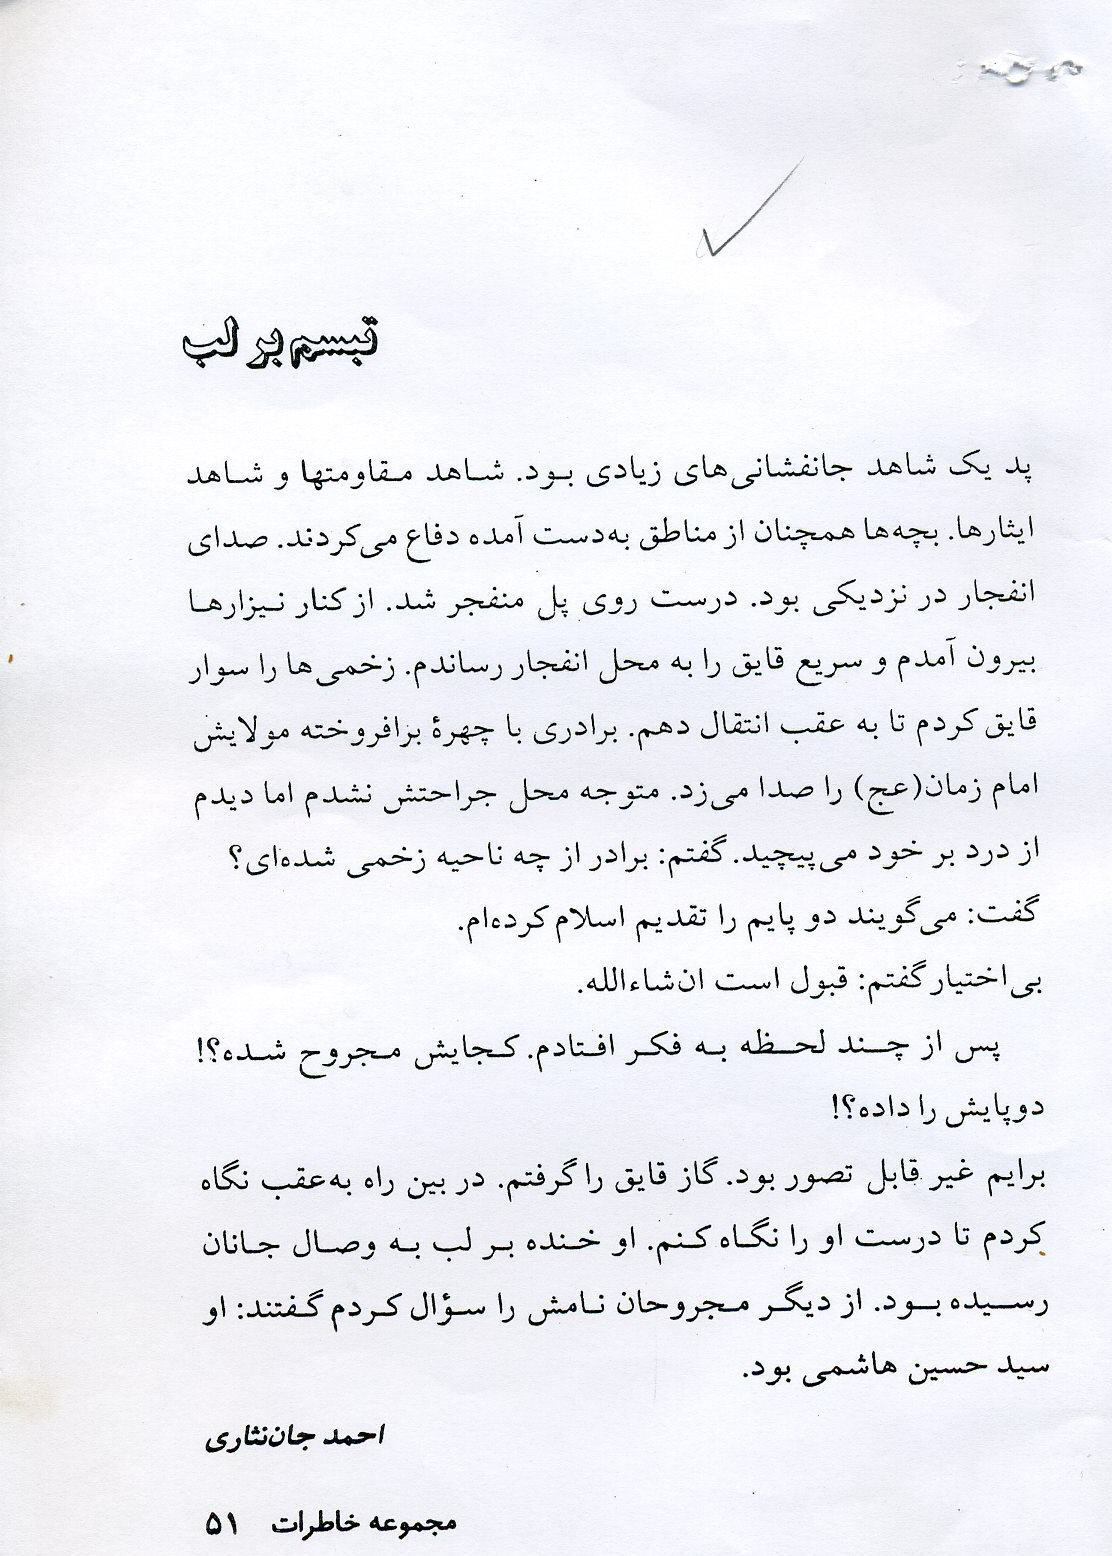 تبسم بر لب
پد یک شاهد جانفشانی‌های زیادی بود. شاهد مقاومتها و شاهد
ایثارها. بچه‌ها همچنان از مناطق به‌دست آمده دفاع می‌کردند. صدای
انفجار در نزدیکی بود. درست روی پل منفجر شد. از کنار نیزارها
بیرون آمدم و سریع قایق را به محل انفجار رساندم. زخمی‌ها را سوار
قایق کردم تا به عقب انتقال دهم. برادری با چهرهٔ برافروخته مولایش
امام زمان(عج) را صدا می‌زد. متوجه محل جراحتش نشدم اما دیدم
از درد بر خود می‌پیچید. گفتم: برادر از چه ناحیه زخمی شده‌ای؟
گفت: می‌گویند دو پایم را تقدیم اسلام کرده‌ام.
بی‌اختیار گفتم: قبول است ان‌شاءالله.
پس از چند لحظه به فکر افتادم. کجایش مجروح شده؟!
دوپایش را داده؟!
برایم غیر قابل تصور بود. گاز قایق را گرفتم. در بین راه به‌عقب نگاه
کردم تا درست او را نگاه کنم. او خنده بر لب به وصال جانان
رسیده بود. از دیگر مجروحان نامش را سؤال کردم گفتند: او
سید حسین هاشمی بود.
احمد جان‌نثاری
مجموعه خاطرات ۵۱